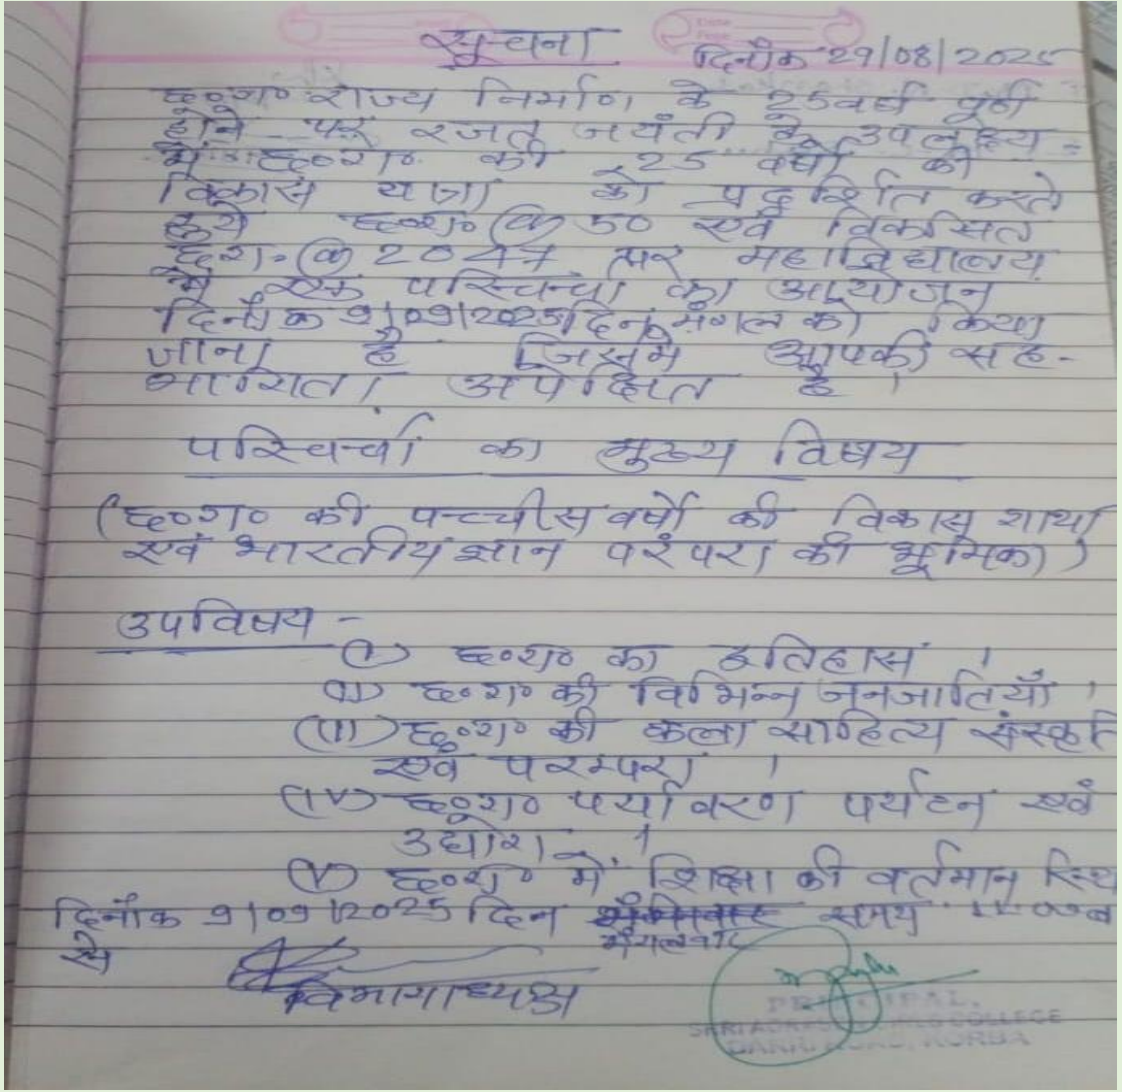 सूचना
दिनाँक 29/08/2025
छ०ग० राज्य निर्माण के 25 वर्ष पूर्ण
होने पर रजत जयंती के उपलक्ष्य
में छ०ग० की 25 वर्षो की
विकास यात्रा को प्रदर्शित करते
हुये छ०ग० @ 50 एवं विकसित
छ०ग० @ 2047 पर महाविद्यालय
में एक परिचर्चा का आयोजन
दिनाँक 9/09/2025 दिन मंगल को किया
जाना है जिसमें आपकी सह-
भागिता अपेक्षित है ।
परिचर्चा का मुख्य विषय
(छ०ग० की पच्चीस वर्षो की विकास गाथा
एवं भारतीय ज्ञान परंपरा की भूमिका)
उपविषय -
(I) छ०ग० का इतिहास ।
(II) छ०ग० की विभिन्न जनजातियाँ ।
(III) छ०ग० की कला साहित्य संस्कृति
एवं परम्परा ।
(IV) छ०ग० पर्यावरण पर्यटन एवं
उद्योग ।
(V) छ०ग० में शिक्षा की वर्तमान स्थि
दिनाँक 9/09/2025 दिन मंगलवार समय 11:00 ब
से
विभागाध्यक्ष
PRINCIPAL,
SHRI COLLEGE
ROAD, KORBA